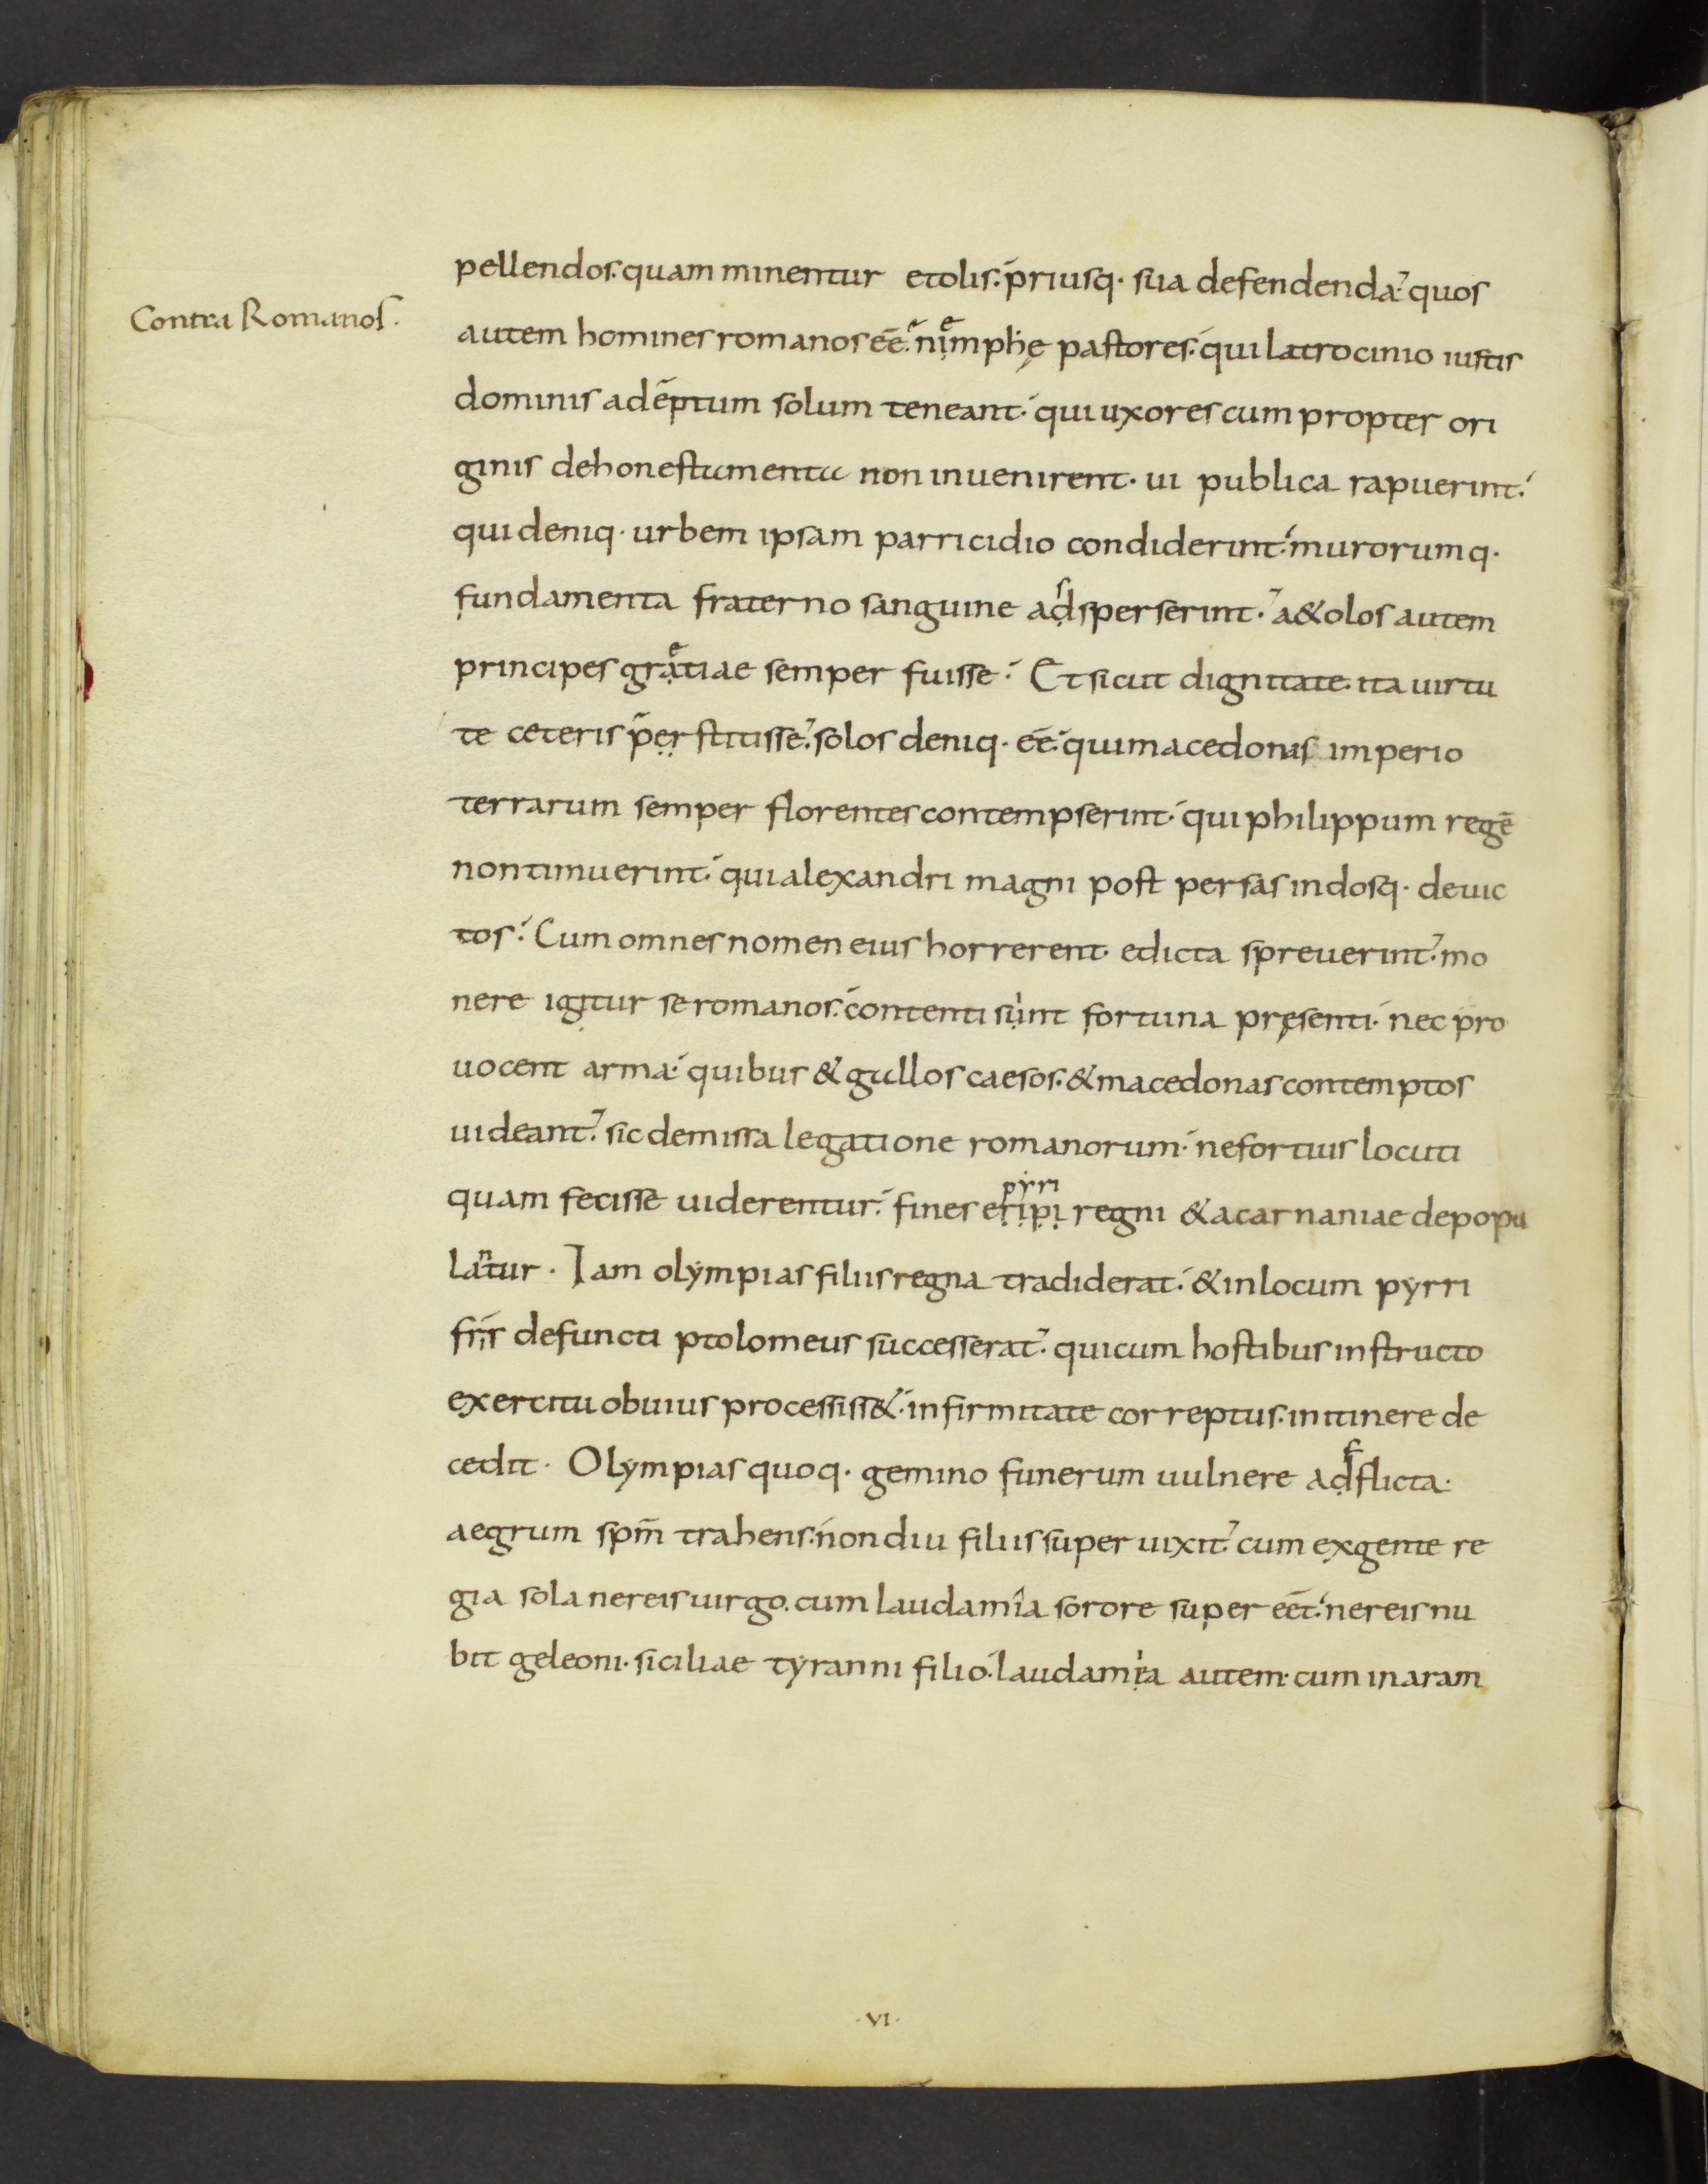 Contra Romanos.
pellendos. quam minentur etolis. priusq· sua defendenda. quos
autem homines romanos eē. nimphę pastores. qui latrocinio iustis
dominis ademptum solum teneant. qui uxores cum propter ori
ginis dehonestamenta non inuenirent. ui publica rapuerint.
qui deniq· urbem ipsam parricidio condiderint. murorumq·
fundamenta fraterno sanguine adsperserint. a&olos autem
principes gratiae semper fuisse. Et sicut dignitate. ita uirtu
te ceteris p̄erstitisse. solos deniq· eē. qui macedonas imperio
terrarum semper florentes contempserint. qui philippum regē
non timuerint. qui alexandri magni post persas indosq· deuic
tos. Cum omnes nomen eius horrerent. edicta spreuerint. mo
nere igitur se romanos. contenti sint fortuna pręsenti. nec pro
uocent arma. quibus & gallos caesos. & macedonas contemptos
uideant. sic demissa legatione romanorum. ne fortius locuti
pyrri
quam fecisse uiderentur. fines eripi regni & acarnaniae depopu
lantur. Iam olympias filiis regna tradiderat. & in locum pyrri
fr̄is defuncti ptolomeus successerat. qui cum hostibus instructo
exercitu obuius processiss&. infirmitate correptus. in itinere de
cedit. Olympias quoq· gemino funerum uulnere adflicta.
aegrum sp̄m trahens. non diu filiis super uixit. cum ex gente re
gia sola nereis uirgo. cum laudamia sorore super eēt. nereis nu
bit geleoni. siciliae tyranni filio. laudamia autem. cum in aram
·VI·